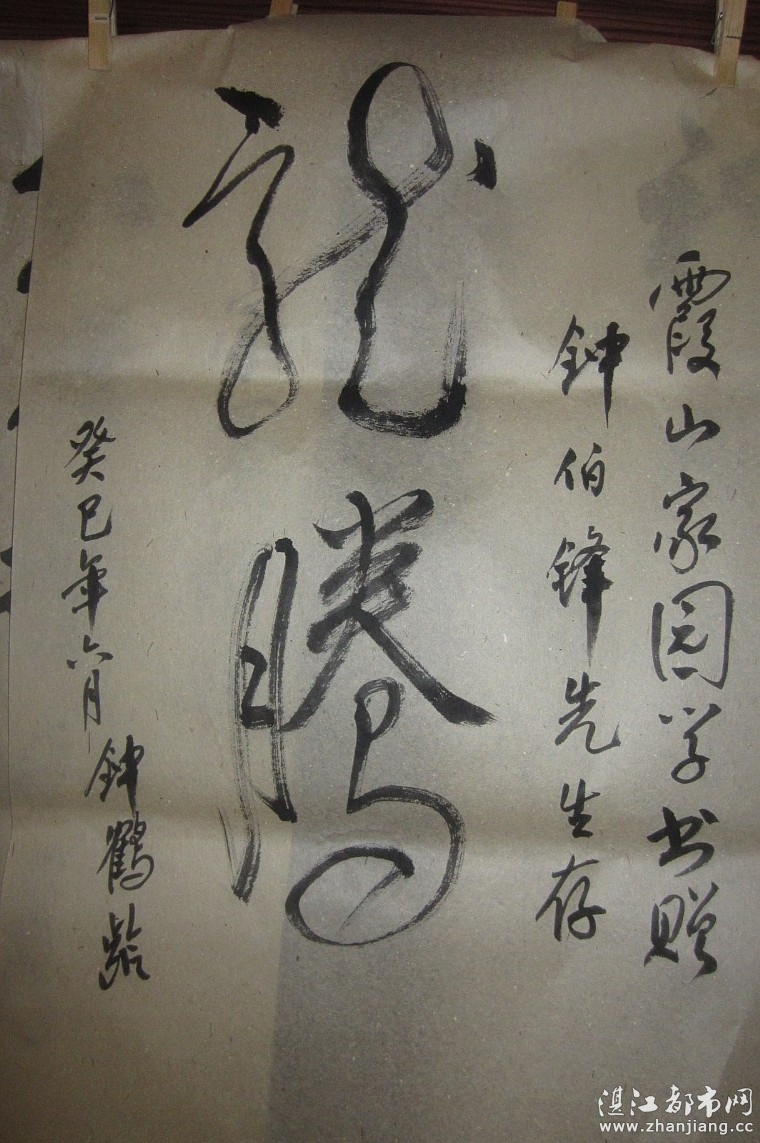 霞山家园学书赠
钟伯锋先生存
龍腾
癸巳年六月
钟鹤龄
湛江都市网
www.zhanjiang.cc